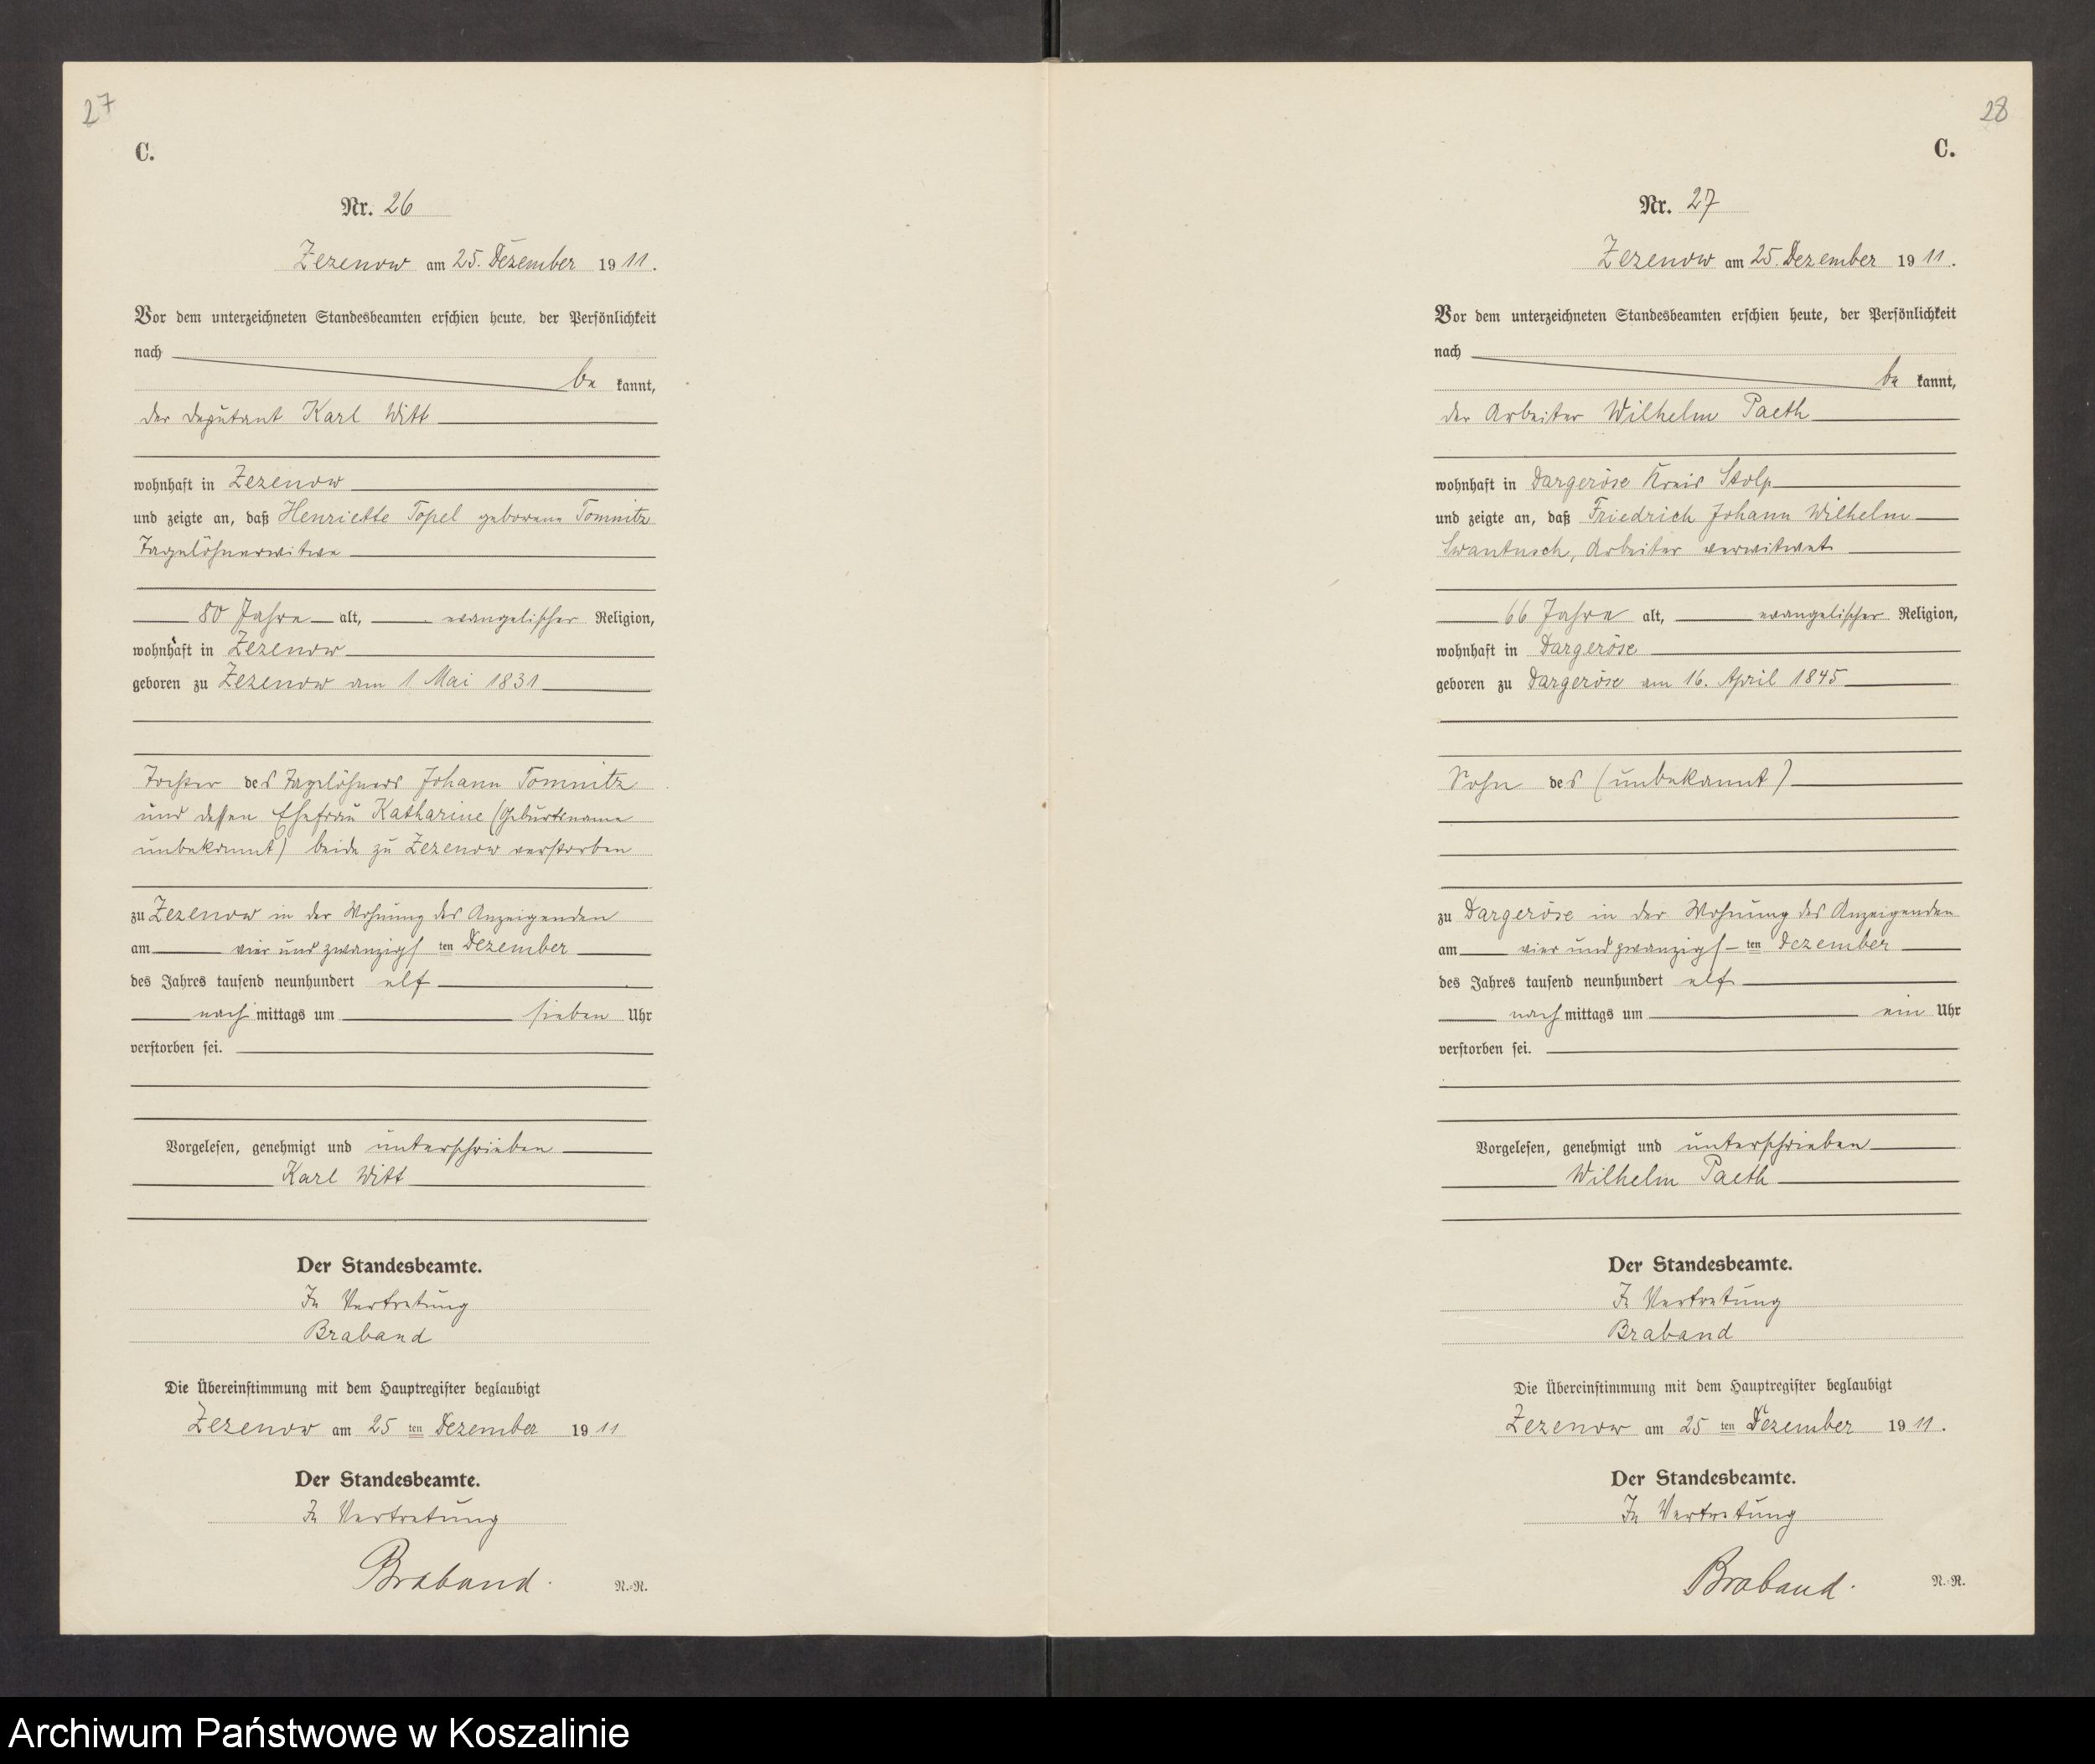 27
C.
Nr. 26
Zezenow am 25. Dezember 1911.
Vor dem unterzeichneten Standesbeamten erschien heute, der Persönlichkeit
nach
be kannt,
der Deputant Karl Witt
wohnhaft in Zezenow
und zeigte an, daß Henriette Topel geborene Tomnitz
Tagelöhnerwitwe
80 Jahre alt, evangelischer Religion,
wohnhaft in Zezenow
geboren zu Zezenow am 1 Mai 1831
Tochter des Tagelöhners Johann Tomnitz
und dessen Ehefrau Katharine (Geburtsname
unbekannt) beide zu Zezenow verstorben
zu Zezenow in der Wohnung des Anzeigenden
am vier und zwanzigsten Dezember
des Jahres tausend neunhundert elf
nachmittags um sieben Uhr
verstorben sei.
Vorgelesen, genehmigt und unterschrieben
Karl Witt
Der Standesbeamte.
In Vertretung
Braband
Die Übereinstimmung mit dem Hauptregister beglaubigt
Zezenow am 25 ten Dezember 1911
Der Standesbeamte.
In Vertretung
Braband.
N.-R.
28
C.
Nr. 27
Zezenow am 25. Dezember 1911.
Vor dem unterzeichneten Standesbeamten erschien heute, der Persönlichkeit
nach
be kannt,
der Arbeiter Wilhelm Paeth
wohnhaft in Dargeröse Kreis Stolp
und zeigte an, daß Friedrich Johann Wilhelm
Swantusch, Arbeiter verwitwet
66 Jahre alt, evangelischer Religion,
wohnhaft in Dargeröse
geboren zu Dargeröse am 16. April 1845
Sohn des (unbekannt)
zu Dargeröse in der Wohnung des Anzeigenden
am vier und zwanzigsten Dezember
des Jahres tausend neunhundert elf
nachmittags um ein Uhr
verstorben sei.
Vorgelesen, genehmigt und unterschrieben
Wilhelm Paeth
Der Standesbeamte.
In Vertretung
Braband
Die Übereinstimmung mit dem Hauptregister beglaubigt
Zezenow am 25 ten Dezember 1911.
Der Standesbeamte.
In Vertretung
Braband.
N.-R.
Archiwum Państwowe w Koszalinie